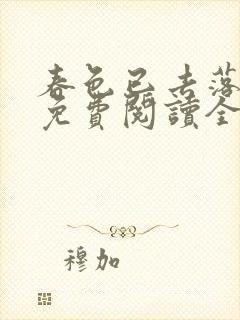 春色已去落
免費閱讀全
穆加